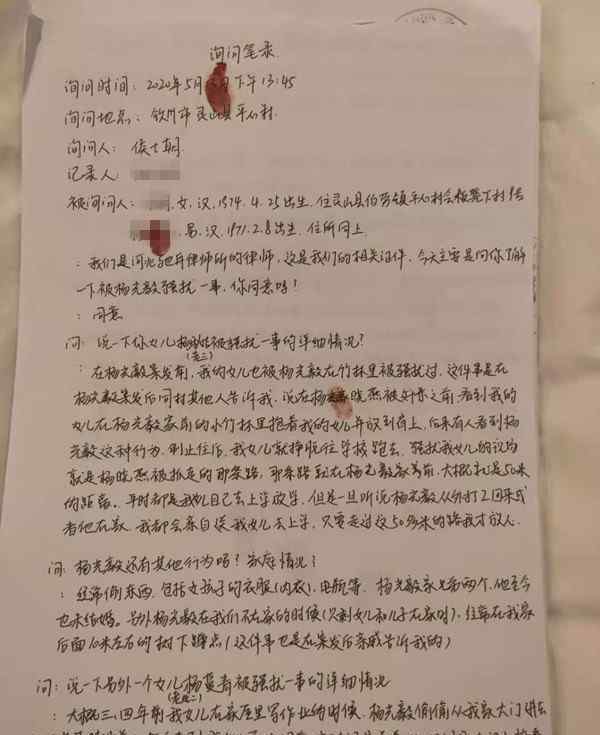 询问笔录
询问时间：2020年5月 下午13:45
询问地点：钦州市灵山县平心村
询问人：侯士朝
记录人
被询问人： ，女，汉，1974.4.25出生，住灵山县伯劳镇平心村会 下村 号
，男，汉，1971.2.8出生，住所同上
：我们是河北 律师所的律师，这是我们的相关证件，今天主要是向你了解
一下被杨光毅骚扰一事，你同意吗？
：同意
问：说一下你女儿 被骚扰一事的详细情况？
(老三)
：在杨光毅案发前，我的女儿也被杨光毅在竹林里被骚扰过，这件事是在
杨光毅案发后同村其他人告诉我，说在杨晓燕被奸杀之前看到我的
女儿在杨光毅家前的小竹林里抱着我的女儿并放到肩上，后来有人看到杨
光毅这种行为，制止住后，我女儿就挣脱往学校跑去，骚扰我女儿的地方
就是杨晓燕被抓走的那条路，那条路 在杨光毅家门前，大概也是50米
的距离。平时都是我女儿自己去上学放学，但是一旦听说杨光毅从外打工回来或
者他在家，我都会亲自送我女儿去上学，只要走过这50多米的路我才放心。
问：杨光毅还有其他行为吗？家庭情况？
：经常偷东西，包括女孩子的衣服(内衣)、电瓶等，杨光毅家兄弟两个，他至今
也未结婚。另外杨光毅在我们不在家的时候(只剩女儿和儿子在家时)，经常在我家
后面10米左右的树下蹲点(这件事也是在案发后亲戚告诉我的)
问：说一下另外一个女儿杨 被骚扰一事的详细情况
(老二)
：大概三、四年前我女儿在家屋里写作业的时候，杨光毅偷偷从我家大门进去